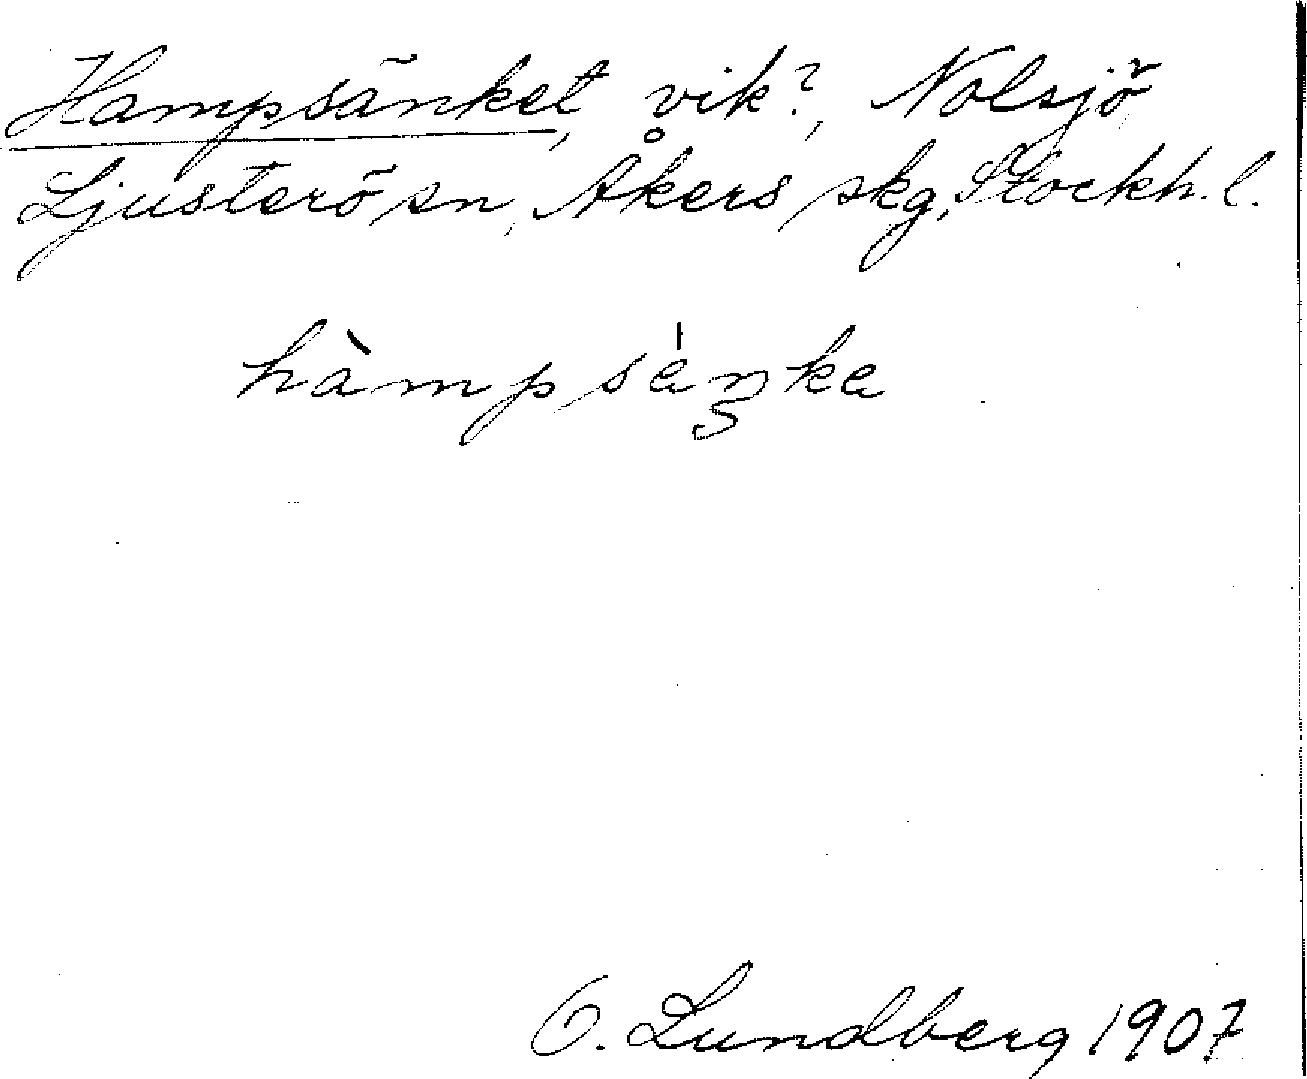 Hampsänket, vik?, Nolsjö
Ljusterö sn, Åkers skg, Stockh. l.
hàmpsȧŋka
O. Lundberg 1907